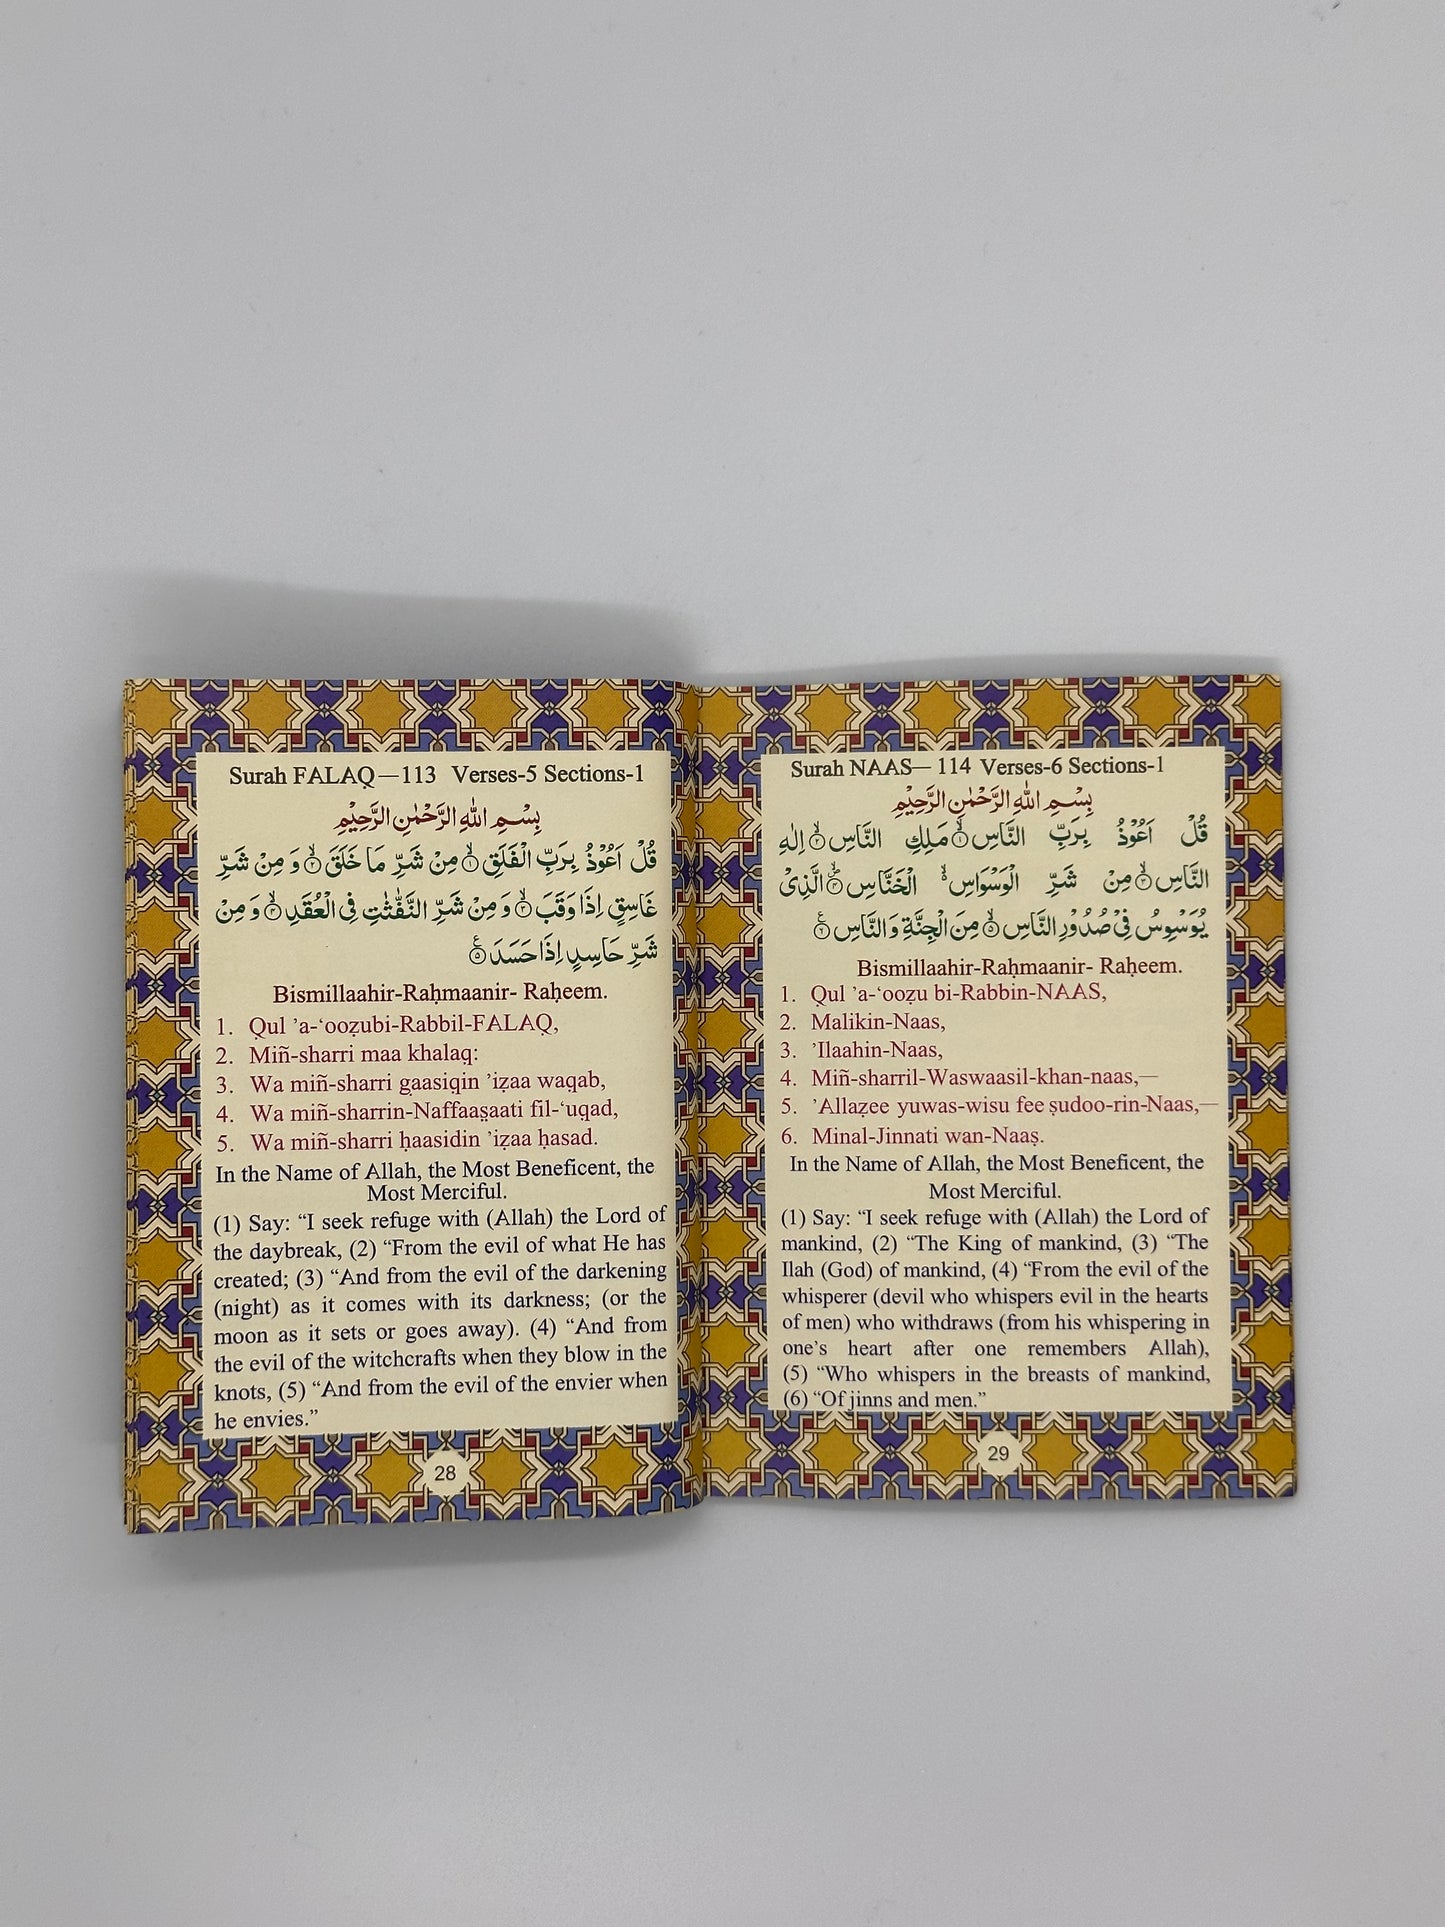 Surah FALAQ—113 Verses-5 Sections-1
بِسْمِ اللّٰهِ الرَّحْمٰنِ الرَّحِيْمِ
قُلْ اَعُوْذُ بِرَبِّ الْفَلَقِ ۙ﴿۱﴾ مِنْ شَرِّ مَا خَلَقَ ۙ﴿۲﴾ وَ مِنْ شَرِّ
غَاسِقٍ اِذَا وَقَبَ ۙ﴿۳﴾ وَ مِنْ شَرِّ النَّفّٰثٰتِ فِی الْعُقَدِ ۙ﴿۴﴾ وَ مِنْ
شَرِّ حَاسِدٍ اِذَا حَسَدَ ﴿۵﴾
Bismillaahir-Raḥmaanir- Raḥeem.
1. Qul ’a-‘ooẓubi-Rabbil-FALAQ,
2. Miñ-sharri maa khalaq:
3. Wa miñ-sharri gaasiqin ’iẓaa waqab,
4. Wa miñ-sharrin-Naffaas̤aati fil-‘uqad,
5. Wa miñ-sharri ḥaasidin ’iẓaa ḥasad.
In the Name of Allah, the Most Beneficent, the
Most Merciful.
(1) Say: “I seek refuge with (Allah) the Lord of
the daybreak, (2) “From the evil of what He has
created; (3) “And from the evil of the darkening
(night) as it comes with its darkness; (or the
moon as it sets or goes away). (4) “And from
the evil of the witchcrafts when they blow in the
knots, (5) “And from the evil of the envier when
he envies.”
28
Surah NAAS— 114 Verses-6 Sections-1
بِسْمِ اللّٰهِ الرَّحْمٰنِ الرَّحِيْمِ
قُلْ اَعُوْذُ بِرَبِّ النَّاسِ ۙ﴿۱﴾ مَلِكِ النَّاسِ ۙ﴿۲﴾ اِلٰهِ
النَّاسِ ۙ﴿۳﴾ مِنْ شَرِّ الْوَسْوَاسِ ۙ۬ الْخَنَّاسِ ﴿۴﴾ الَّذِیْ
یُوَسْوِسُ فِیْ صُدُوْرِ النَّاسِ ۙ﴿۵﴾ مِنَ الْجِنَّةِ وَ النَّاسِ ﴿۶﴾
Bismillaahir-Raḥmaanir- Raḥeem.
1. Qul ’a-‘ooẓu bi-Rabbin-NAAS,
2. Malikin-Naas,
3. ’Ilaahin-Naas,
4. Miñ-sharril-Waswaasil-khan-naas,—
5. ’Allaẓee yuwas-wisu fee ṣudoo-rin-Naas,—
6. Minal-Jinnati wan-Naaṣ.
In the Name of Allah, the Most Beneficent, the
Most Merciful.
(1) Say: “I seek refuge with (Allah) the Lord of
mankind, (2) “The King of mankind, (3) “The
Ilah (God) of mankind, (4) “From the evil of the
whisperer (devil who whispers evil in the hearts
of men) who withdraws (from his whispering in
one’s heart after one remembers Allah),
(5) “Who whispers in the breasts of mankind,
(6) “Of jinns and men.”
29